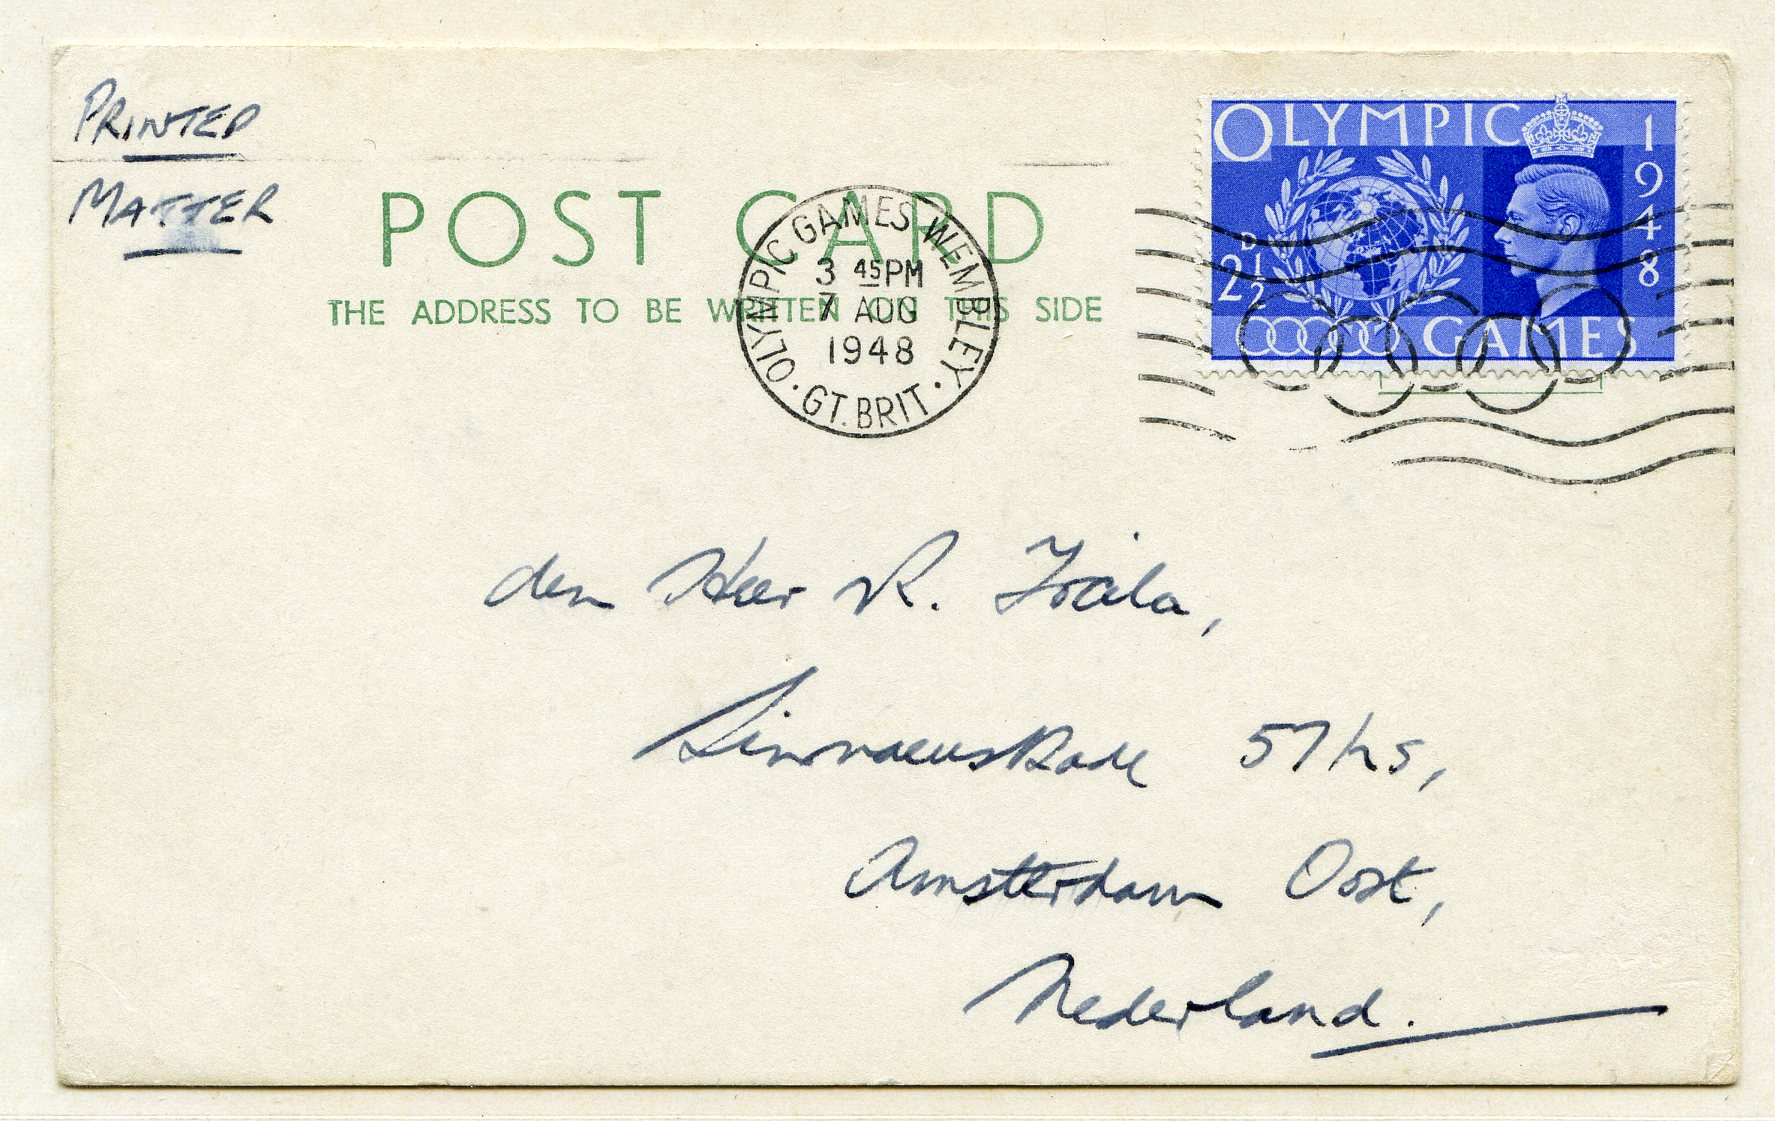 PRINTED
MATTER
POST CARD
THE ADDRESS TO BE WRITTEN ON THIS SIDE
OLYMPIC GAMES WEMBLEY
3 45PM
7 AUG
1948
GT. BRIT.
OLYMPIC
1948
2½D
GAMES
den Heer R.
Linnaeuskade 57hs,
Amsterdam Oost,
Nederland.